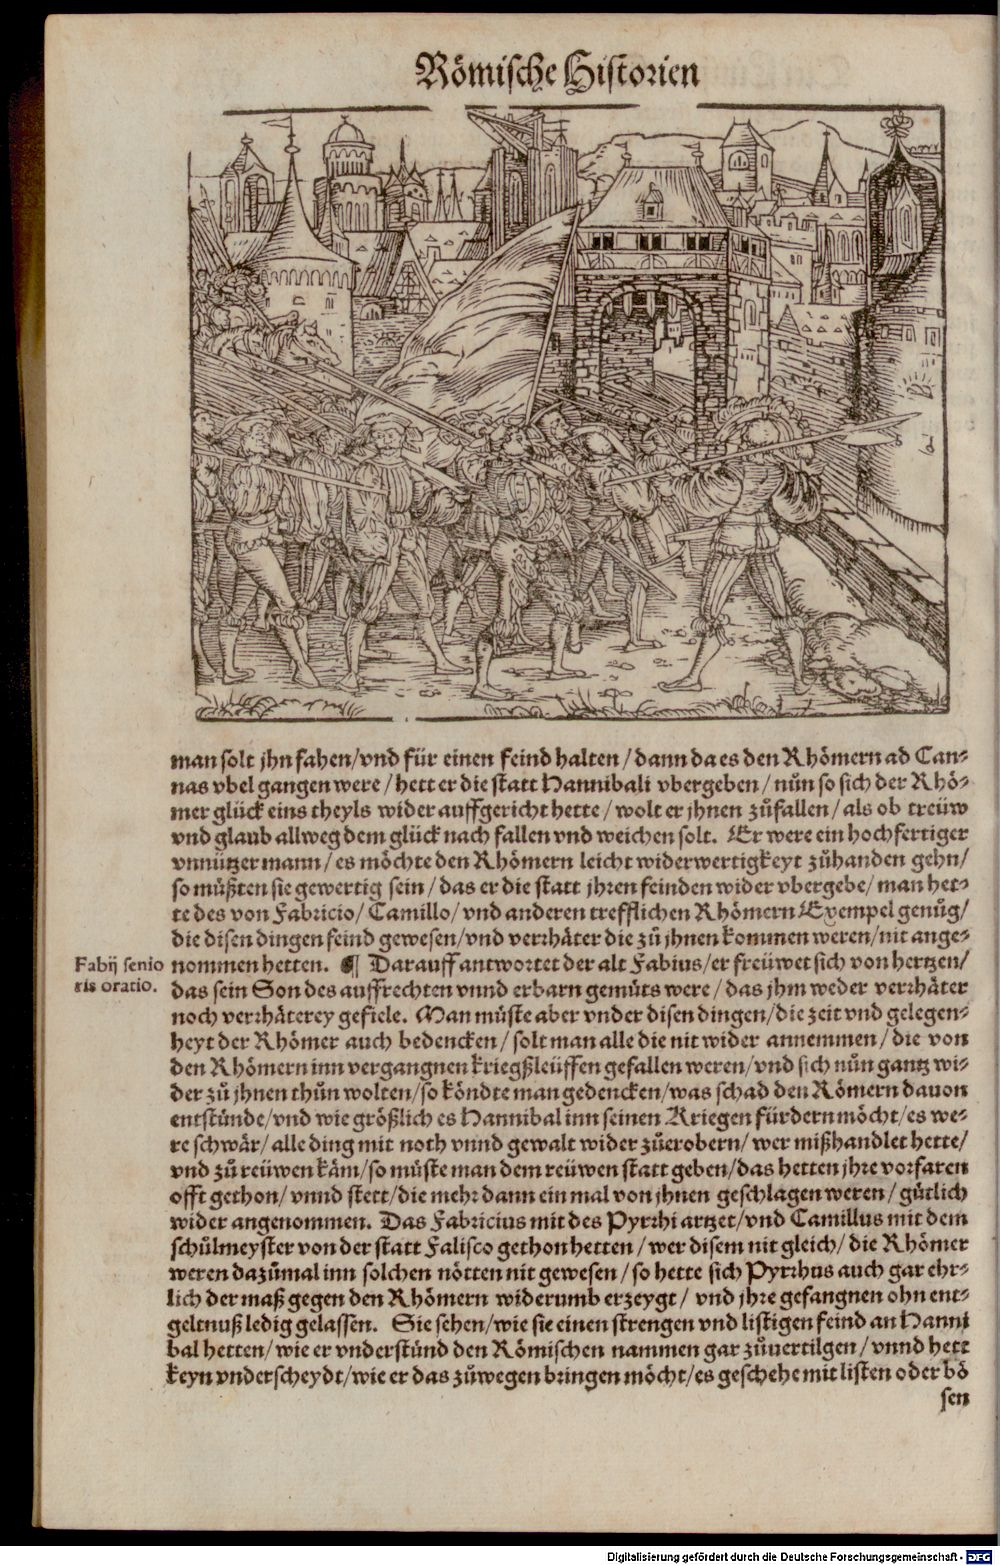 Römische Historien
man solt jhn fahen/vnd für einen feind halten/dann da es den Rhömern ad Can-
nas vbel gangen were/hett er die statt Hannibali vbergeben/nůn so sich der Rhö-
mer glück eins theyls wider auffgericht hette/wolt er jhnen zůfallen/als ob treüw
vnd glaub allweg dem glück nach fallen vnd weichen solt. Er were ein hochfertiger
vnnützer mann/es möchte den Rhömern leicht widerwertigkeyt zůhanden gehn/
so müßten sie gewertig sein/das er die statt jhren feinden wider vbergebe/man het-
te des von Fabricio/Camillo/vnd anderen trefflichen Rhömern Exempel genůg/
die disen dingen feind gewesen/vnd verrhäter die zů jhnen kommen weren/nit ange-
Fabij senio
ris oratio.
nommen hetten. ¶ Darauff antwortet der alt Fabius/er freüwet sich von hertzen/
das sein Son des auffrechten vnnd erbarn gemüts were/das jhm weder verrhäter
noch verrhäterey gefiele. Man müste aber vnder disen dingen/die zeit vnd gelegen-
heyt der Rhömer auch bedencken/solt man alle die nit wider annemmen/die von
den Rhömern inn vergangnen kriegßleüffen gefallen weren/vnd sich nůn gantz wi-
der zů jhnen thůn wolten/so köndte man gedencken/was schad den Römern dauon
entstünde/vnd wie größlich es Hannibal inn seinen Kriegen fürdern möcht/es we-
re schwär/alle ding mit noth vnnd gewalt wider zůerobern/wer mißhandlet hette/
vnd zů reüwen käm/so müste man dem reüwen statt geben/das hetten jhre vorfaren
offt gethon/vnnd stett/die mehr dann ein mal von jhnen geschlagen weren/gütlich
wider angenommen. Das Fabricius mit des Pyrrhi artzet/vnd Camillus mit dem
schůlmeyster von der statt Falisco gethon hetten/wer disem nit gleich/die Rhömer
weren dazůmal inn solchen nötten nit gewesen/so hette sich Pyrrhus auch gar ehr-
lich der maß gegen den Rhömern widerumb erzeygt/vnd jhre gefangnen ohn ent-
geltnuß ledig gelassen. Sie sehen/wie sie einen strengen vnd listigen feind an Hanni
bal hetten/wie er vnderstünd den Römischen nammen gar zůuertilgen/vnnd hett
keyn vnderscheydt/wie er das zůwegen bringen möcht/es geschehe mit listen oder bö
sen
Digitalisierung gefördert durch die Deutsche Forschungsgemeinschaft - DFG